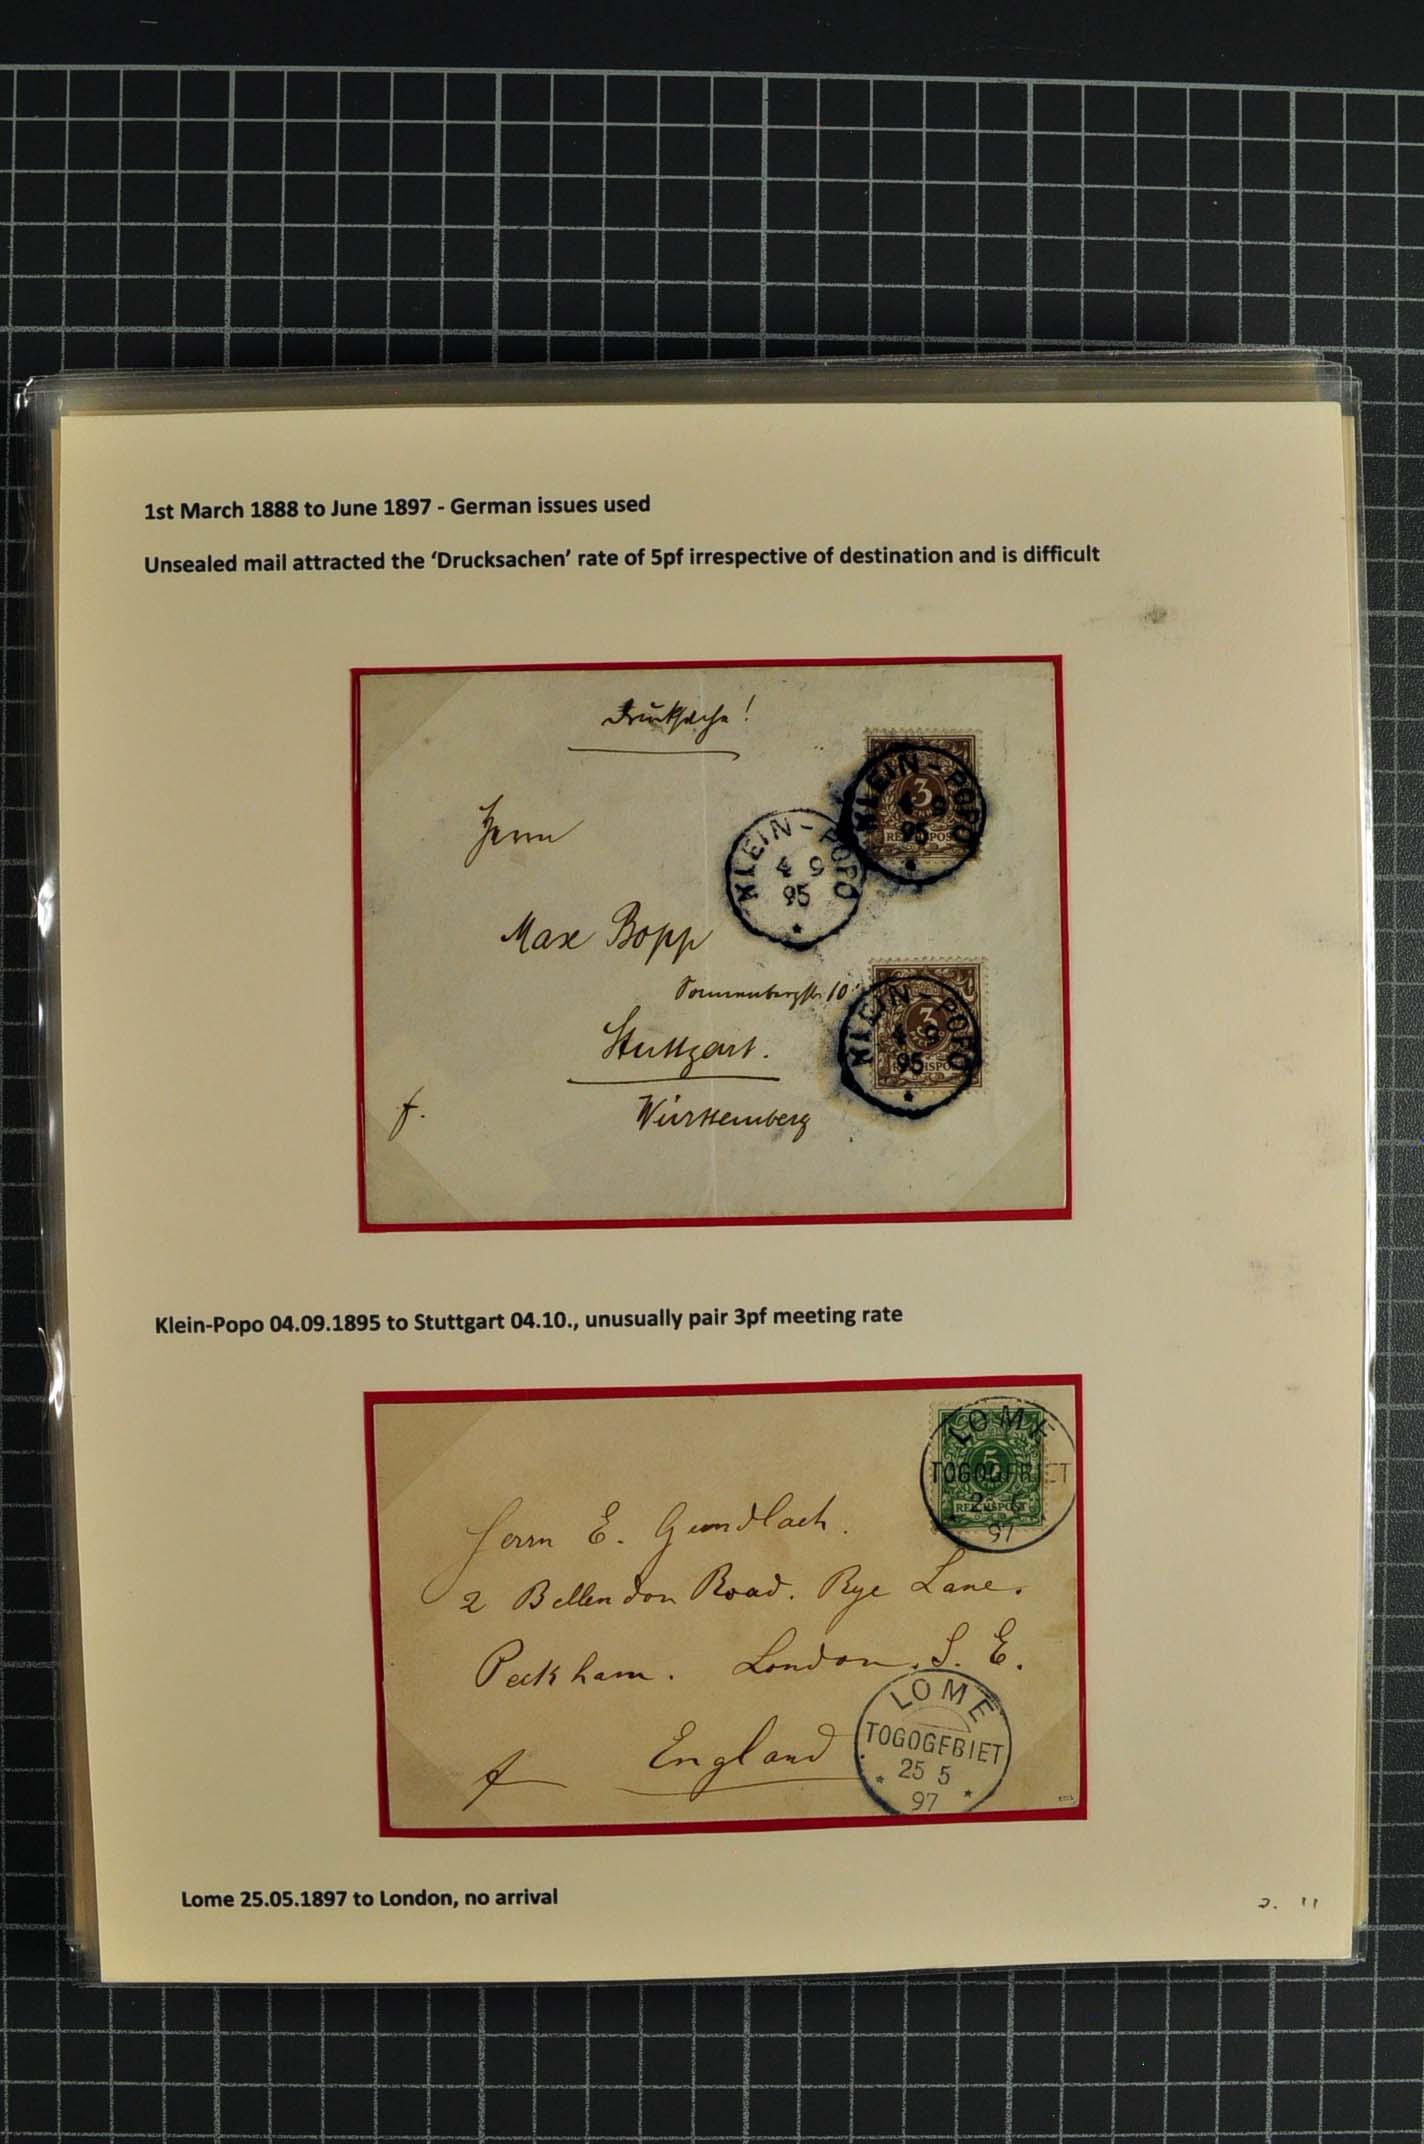 1st March 1888 to June 1897 - German issues used
Unsealed mail attracted the ‘Drucksachen’ rate of 5pf irrespective of destination and is difficult
Drucksache!
Herrn
Max Bopp
Sonnenbergstr. 10
Stuttgart.
Württemberg
f.
KLEIN-POPO
4 9
95
KLEIN-POPO
4 9
95
3
REICHSPOST
KLEIN-POPO
4 9
95
3
REICHSPOST
Klein-Popo 04.09.1895 to Stuttgart 04.10., unusually pair 3pf meeting rate
LOME
TOGOGEBIET
97
5
REICHSPOST
Herrn E. Gundlach.
2 Bellendon Road. Rye Lane.
Peckham. London. S. E.
England
f
LOME
TOGOGEBIET
25 5
97
Lome 25.05.1897 to London, no arrival